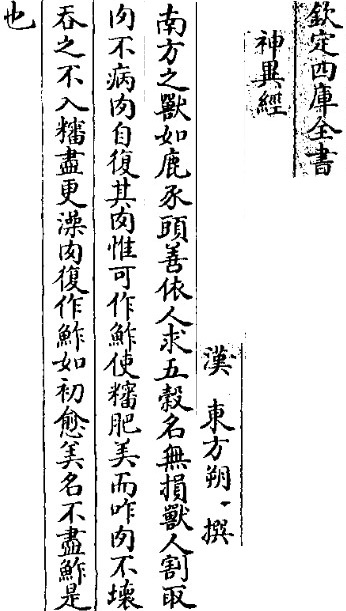 欽定四庫全書
神異經
漢 東方朔 撰
南方之獸如鹿豕頭善依人求五穀名無損獸人割取
肉不病肉自復其肉惟可作鮓使糝肥美而咋肉不壞
吞之不入糝盡更溱肉復作鮓如初愈美名不盡鮓是
也